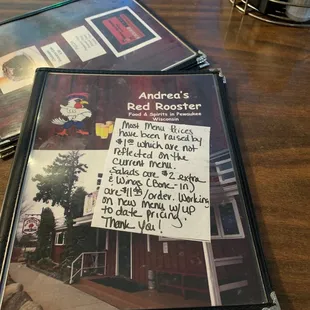 Andrea's
Red Rooster
Food & Spirits in Pewaukee
Wisconsin
Most Menu Prices
have been raised by
$1.00 which are not
reflected on the
current menu.
Salads are $2 extra
& Wings (Bone-in)
are $11.95/order. Working
on new menu w/up
to date pricing.
Thank you!